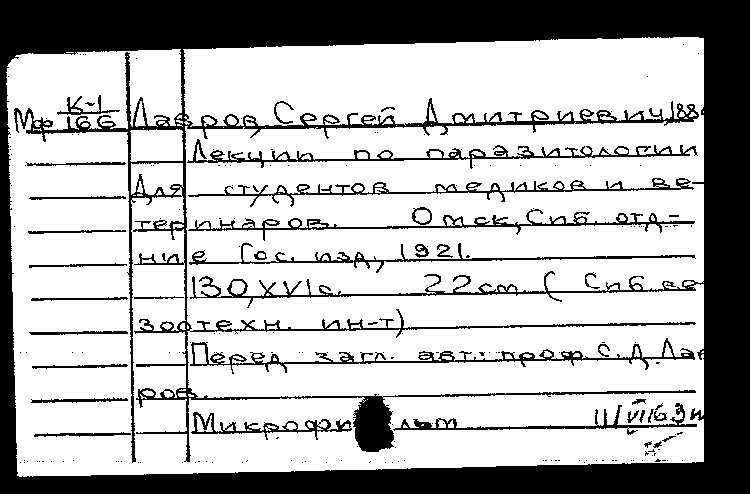 Мф К-1/166 Лавров, Сергей Дмитриевич, 188
Лекции по паразитологии
Для студентов медиков и ве-
теринаров. Омск, Сиб. отд-
ние Гос. изд., 1921.
130, XVI с. 22 см. (Сиб ве
зоотехн. ин-т)
Перед загл. авт.: проф С. Д. Лав
ров.
Микрофи льм 11/VII 63